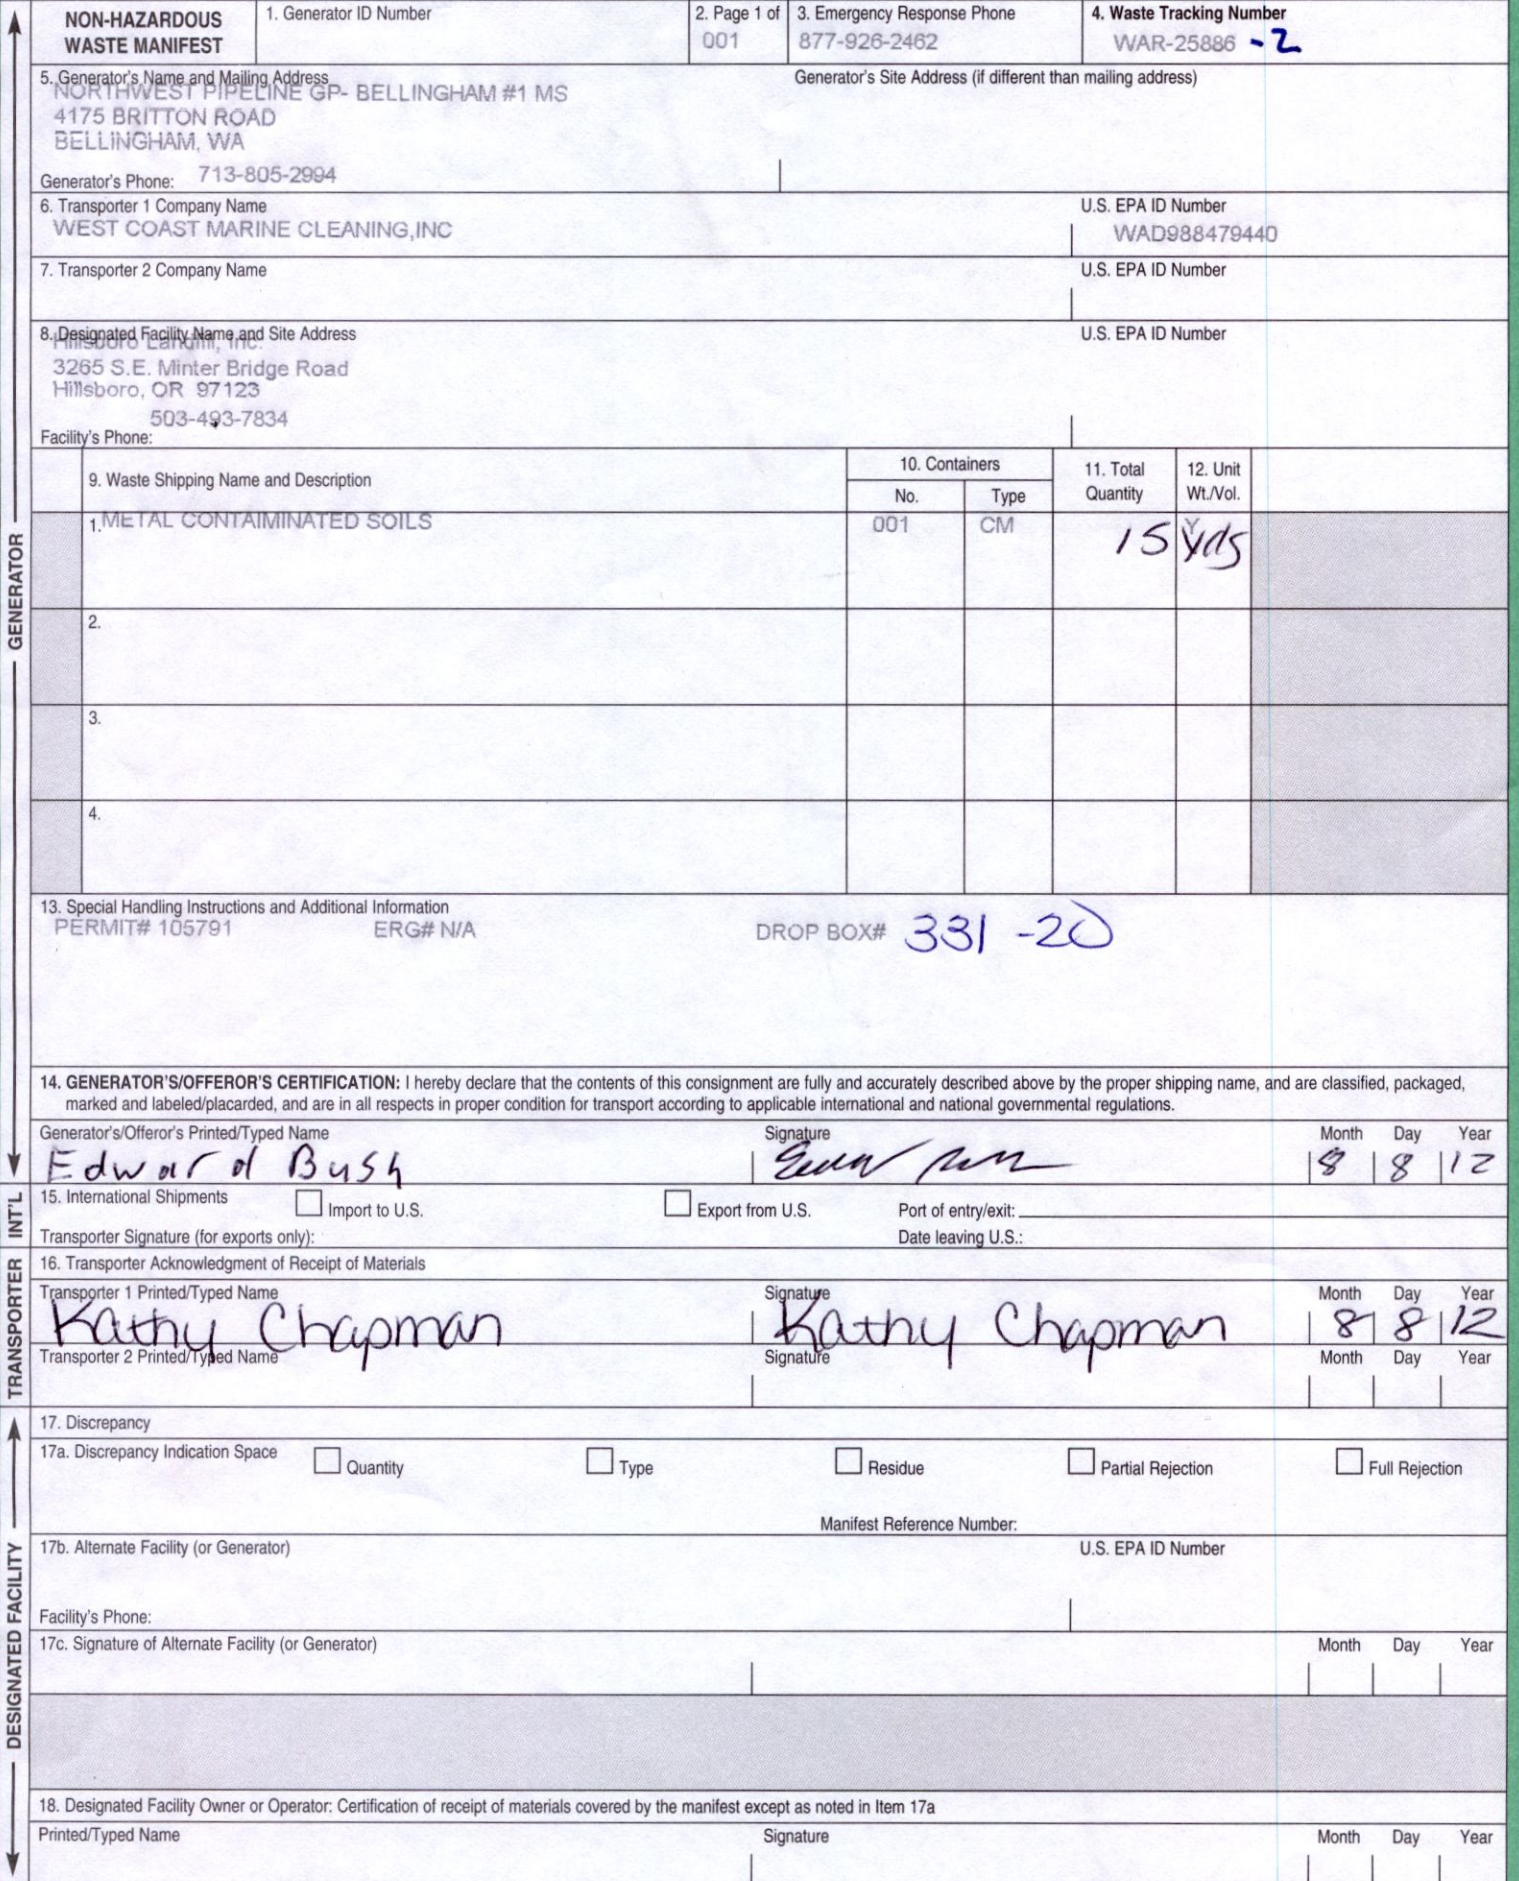 NON-HAZARDOUS
WASTE MANIFEST
1. Generator ID Number
2. Page 1 of
001
3. Emergency Response Phone
877-926-2462
4. Waste Tracking Number
WAR-25886 -2
5. Generator's Name and Mailing Address
Generator's Site Address (if different than mailing address)
NORTHWEST PIPELINE GP- BELLINGHAM #1 MS
4175 BRITTON ROAD
BELLINGHAM, WA
Generator's Phone: 713-805-2994
6. Transporter 1 Company Name
U.S. EPA ID Number
WEST COAST MARINE CLEANING,INC
WAD988479440
7. Transporter 2 Company Name
U.S. EPA ID Number
8. Designated Facility Name and Site Address
U.S. EPA ID Number
Hillsboro Landfill, Inc.
3265 S.E. Minter Bridge Road
Hillsboro, OR 97123
503-493-7834
Facility's Phone:
9. Waste Shipping Name and Description
10. Containers
No.
Type
11. Total
Quantity
12. Unit
Wt./Vol.
1. METAL CONTAIMINATED SOILS
001
CM
15
Y
yds
2.
3.
4.
13. Special Handling Instructions and Additional Information
PERMIT# 105791 ERG# N/A DROP BOX# 331 -20
14. GENERATOR'S/OFFEROR'S CERTIFICATION: I hereby declare that the contents of this consignment are fully and accurately described above by the proper shipping name, and are classified, packaged,
marked and labeled/placarded, and are in all respects in proper condition for transport according to applicable international and national governmental regulations.
Generator's/Offeror's Printed/Typed Name
Signature
Month Day Year
Edward Bush
8 8 12
15. International Shipments
Import to U.S.
Export from U.S.
Port of entry/exit:
Transporter Signature (for exports only):
Date leaving U.S.:
16. Transporter Acknowledgment of Receipt of Materials
Transporter 1 Printed/Typed Name
Signature
Month Day Year
Kathy Chapman
Kathy Chapman
8 8 12
Transporter 2 Printed/Typed Name
Signature
Month Day Year
17. Discrepancy
17a. Discrepancy Indication Space
Quantity
Type
Residue
Partial Rejection
Full Rejection
Manifest Reference Number:
17b. Alternate Facility (or Generator)
U.S. EPA ID Number
Facility's Phone:
17c. Signature of Alternate Facility (or Generator)
Month Day Year
18. Designated Facility Owner or Operator: Certification of receipt of materials covered by the manifest except as noted in Item 17a
Printed/Typed Name
Signature
Month Day Year
GENERATOR
INT'L
TRANSPORTER
DESIGNATED FACILITY